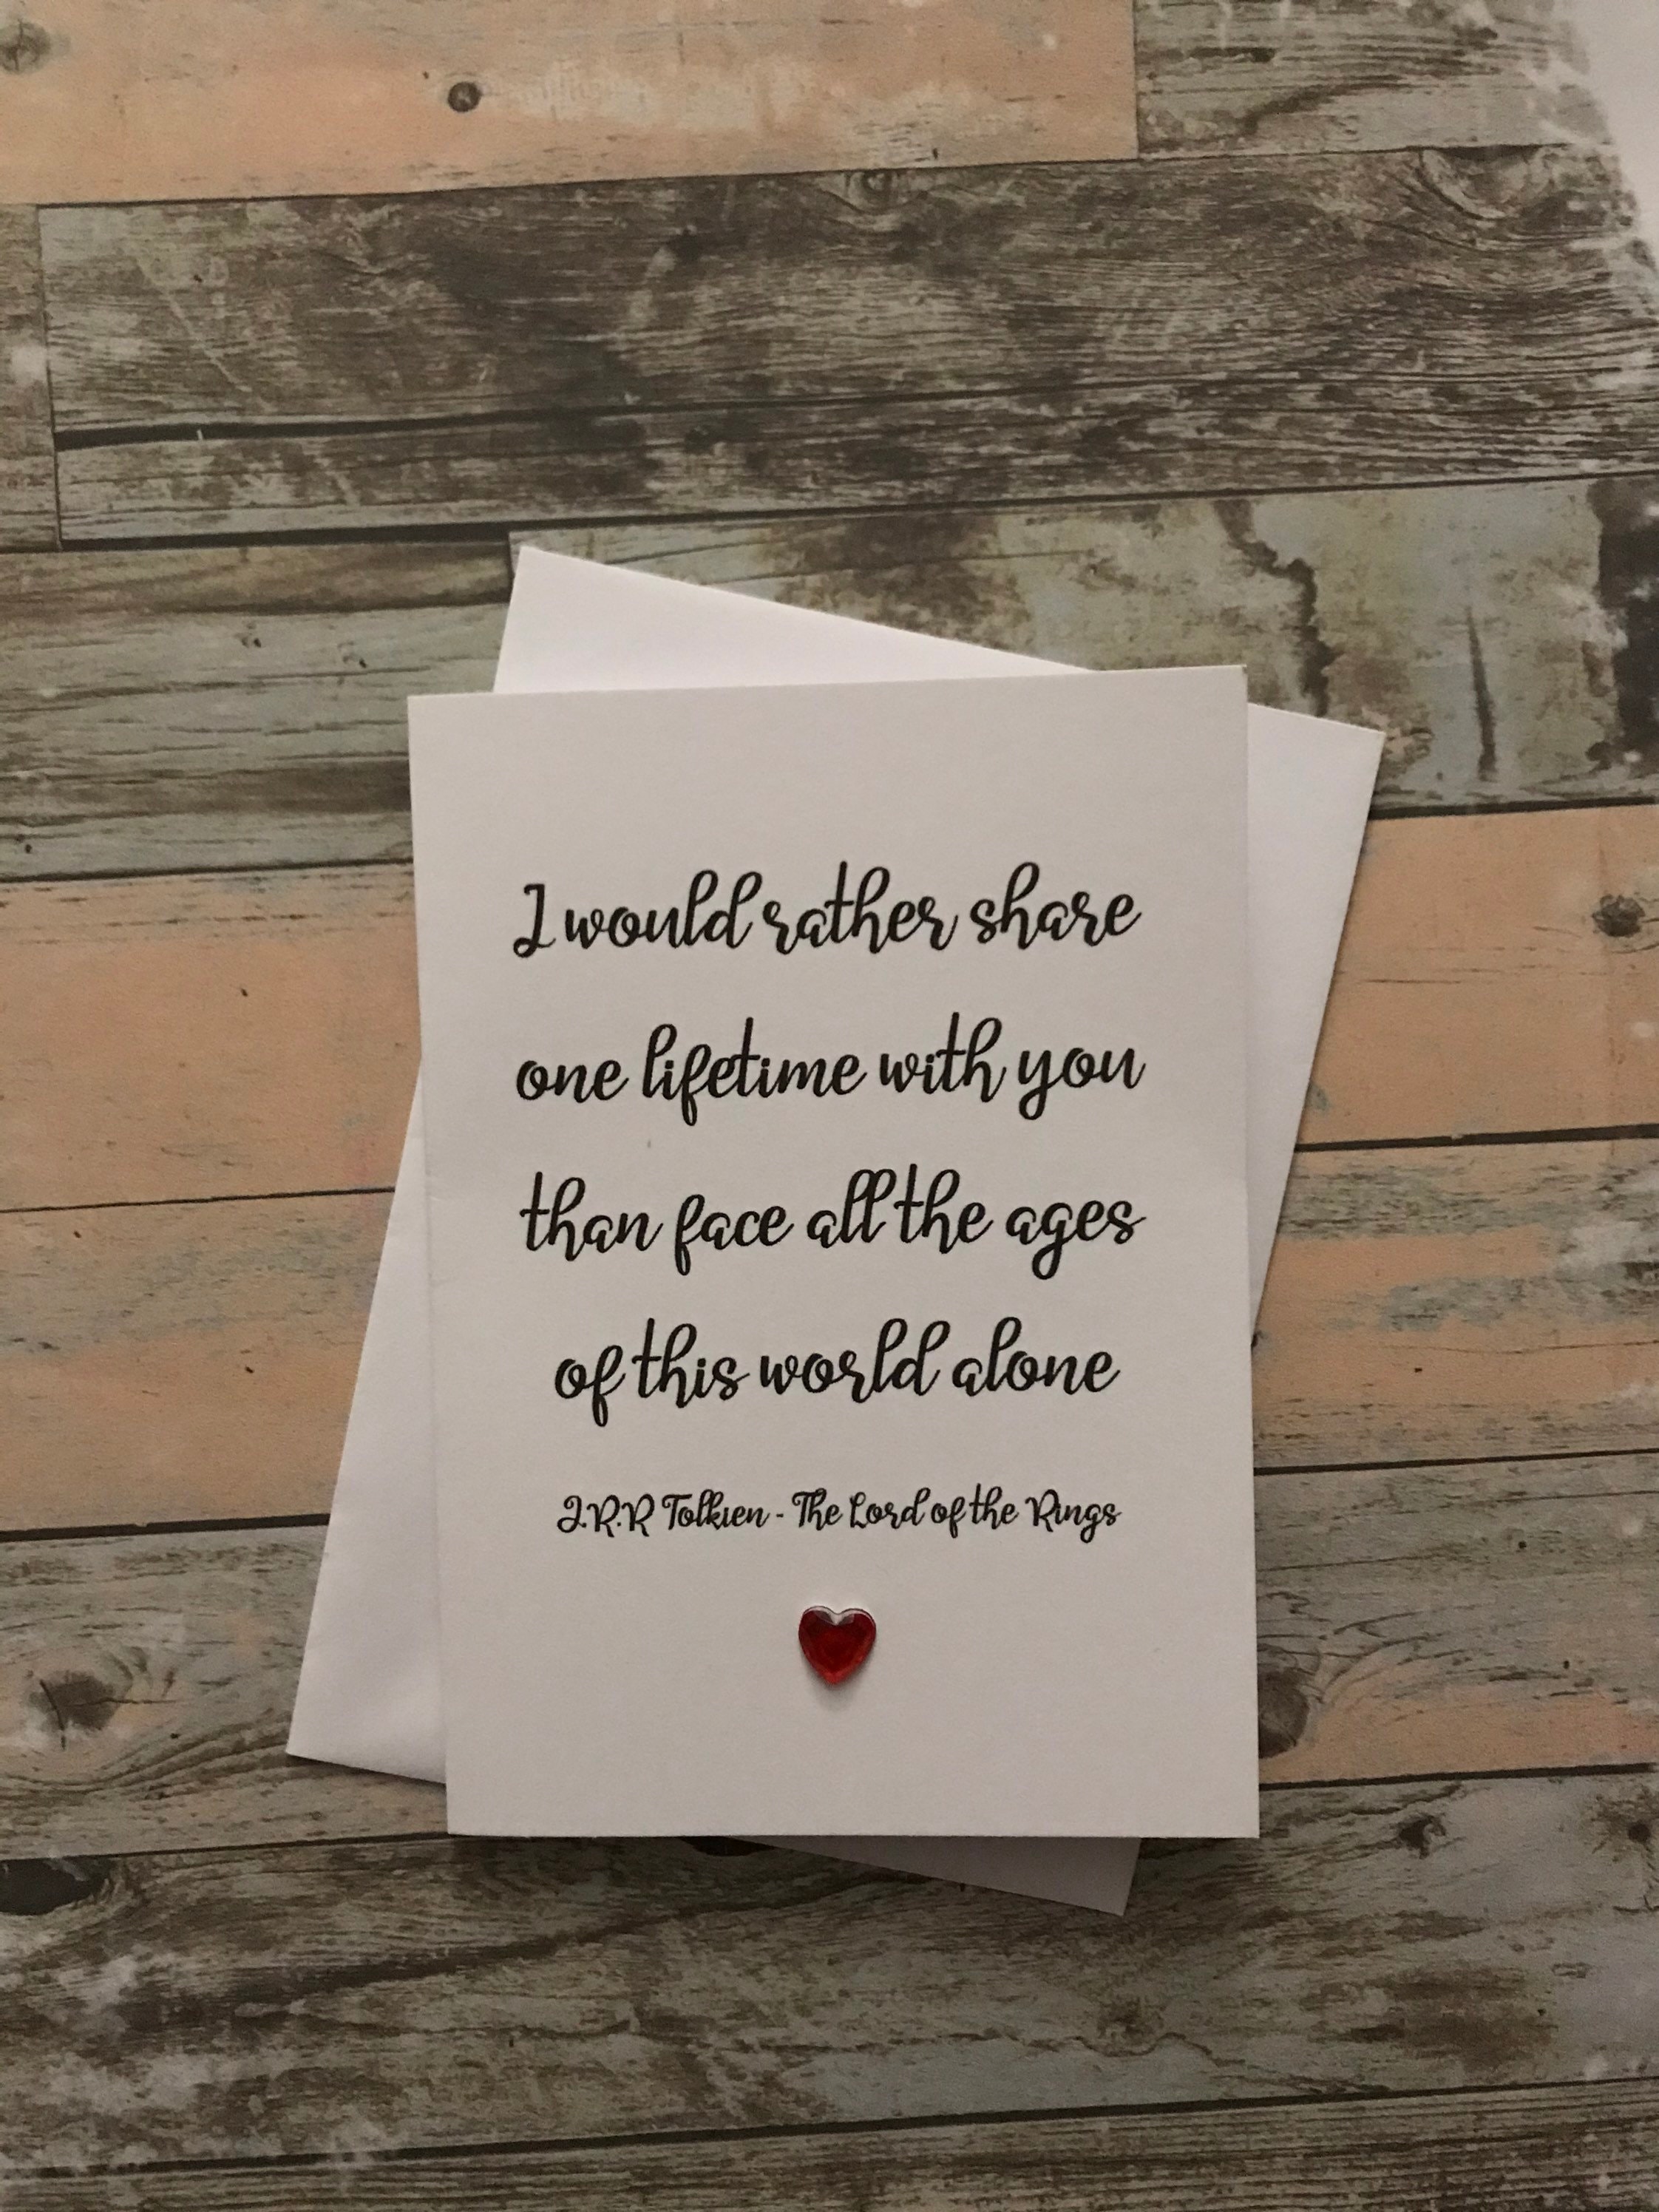 I would rather share
one lifetime with you
than face all the ages
of this world alone
J.R.R Tolkien - The Lord of the Rings